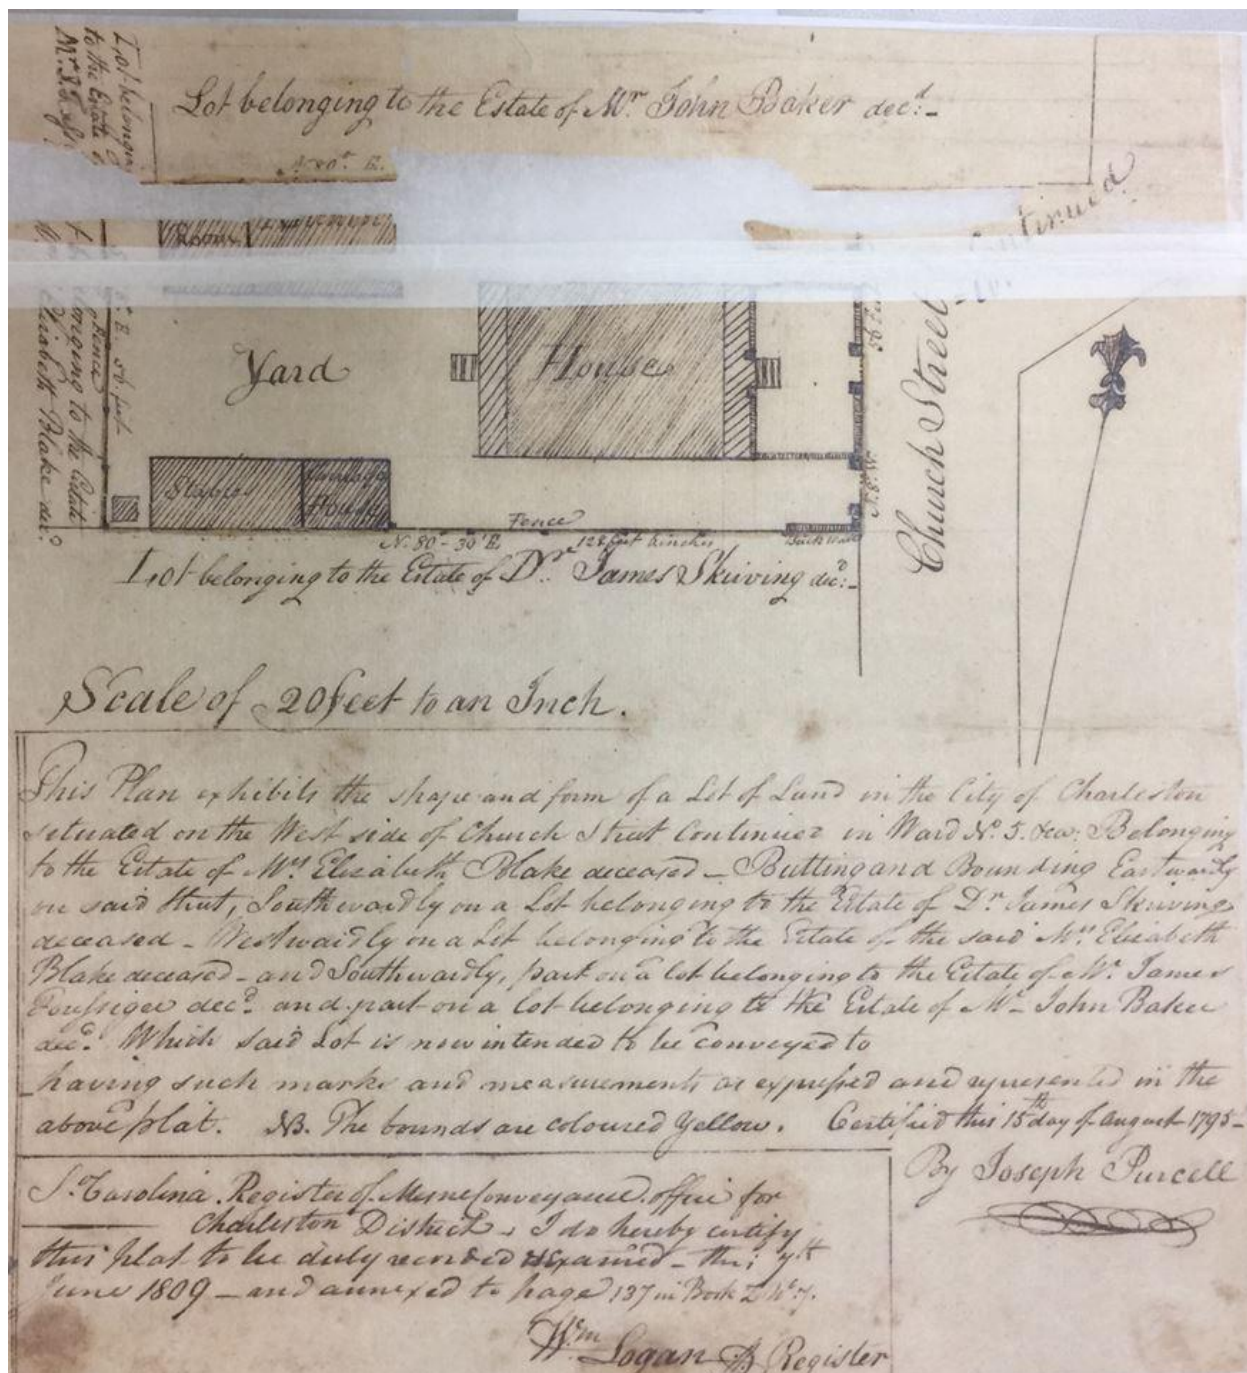 Lot belonging
to the Estate
Lot belonging to the Estate of Mr. John Baker decd.
N. 80° E.
Room
Continued
E. 56 feet
Fence
belonging to the Estate
Elizabeth Blake decd.
Yard
House
Stables
Carriage
House
Fence
N. 80-30' E.
Brick Wall
N. 8. W.
Church Street
Lot belonging to the Estate of Dr. James Skirving decd.
Scale of 20 feet to an Inch.
This Plan exhibits the shape and form of a Lot of Land in the City of Charleston
situated on the West side of Church Street Continued in Ward No. 5. Belonging
to the Estate of Mrs. Elizabeth Blake deceased - Butting and Bounding Eastwardly
on said Street, Southwardly on a Lot belonging to the Estate of Dr. James Skirving
deceased - Westwardly on a Lot belonging to the Estate of the said Mrs. Elizabeth
Blake deceased - and Southwardly, part on a lot belonging to the Estate of Mr. James
decd. and part on a lot belonging to the Estate of Mr. John Baker
decd. Which said Lot is now intended to be conveyed to
having such marks and measurements as expressed and represented in the
above plat. NB. The bounds are coloured Yellow. Certified this 15th day of August 1795-
By Joseph Purcell
S. Carolina. Register of Mesne Conveyance office for
Charleston District. I do hereby certify
this plat to be duly recorded & Examined - this 7th
June 1809 - and annexed to page 137 in Book Z No. 7.
Wm. Logan Register